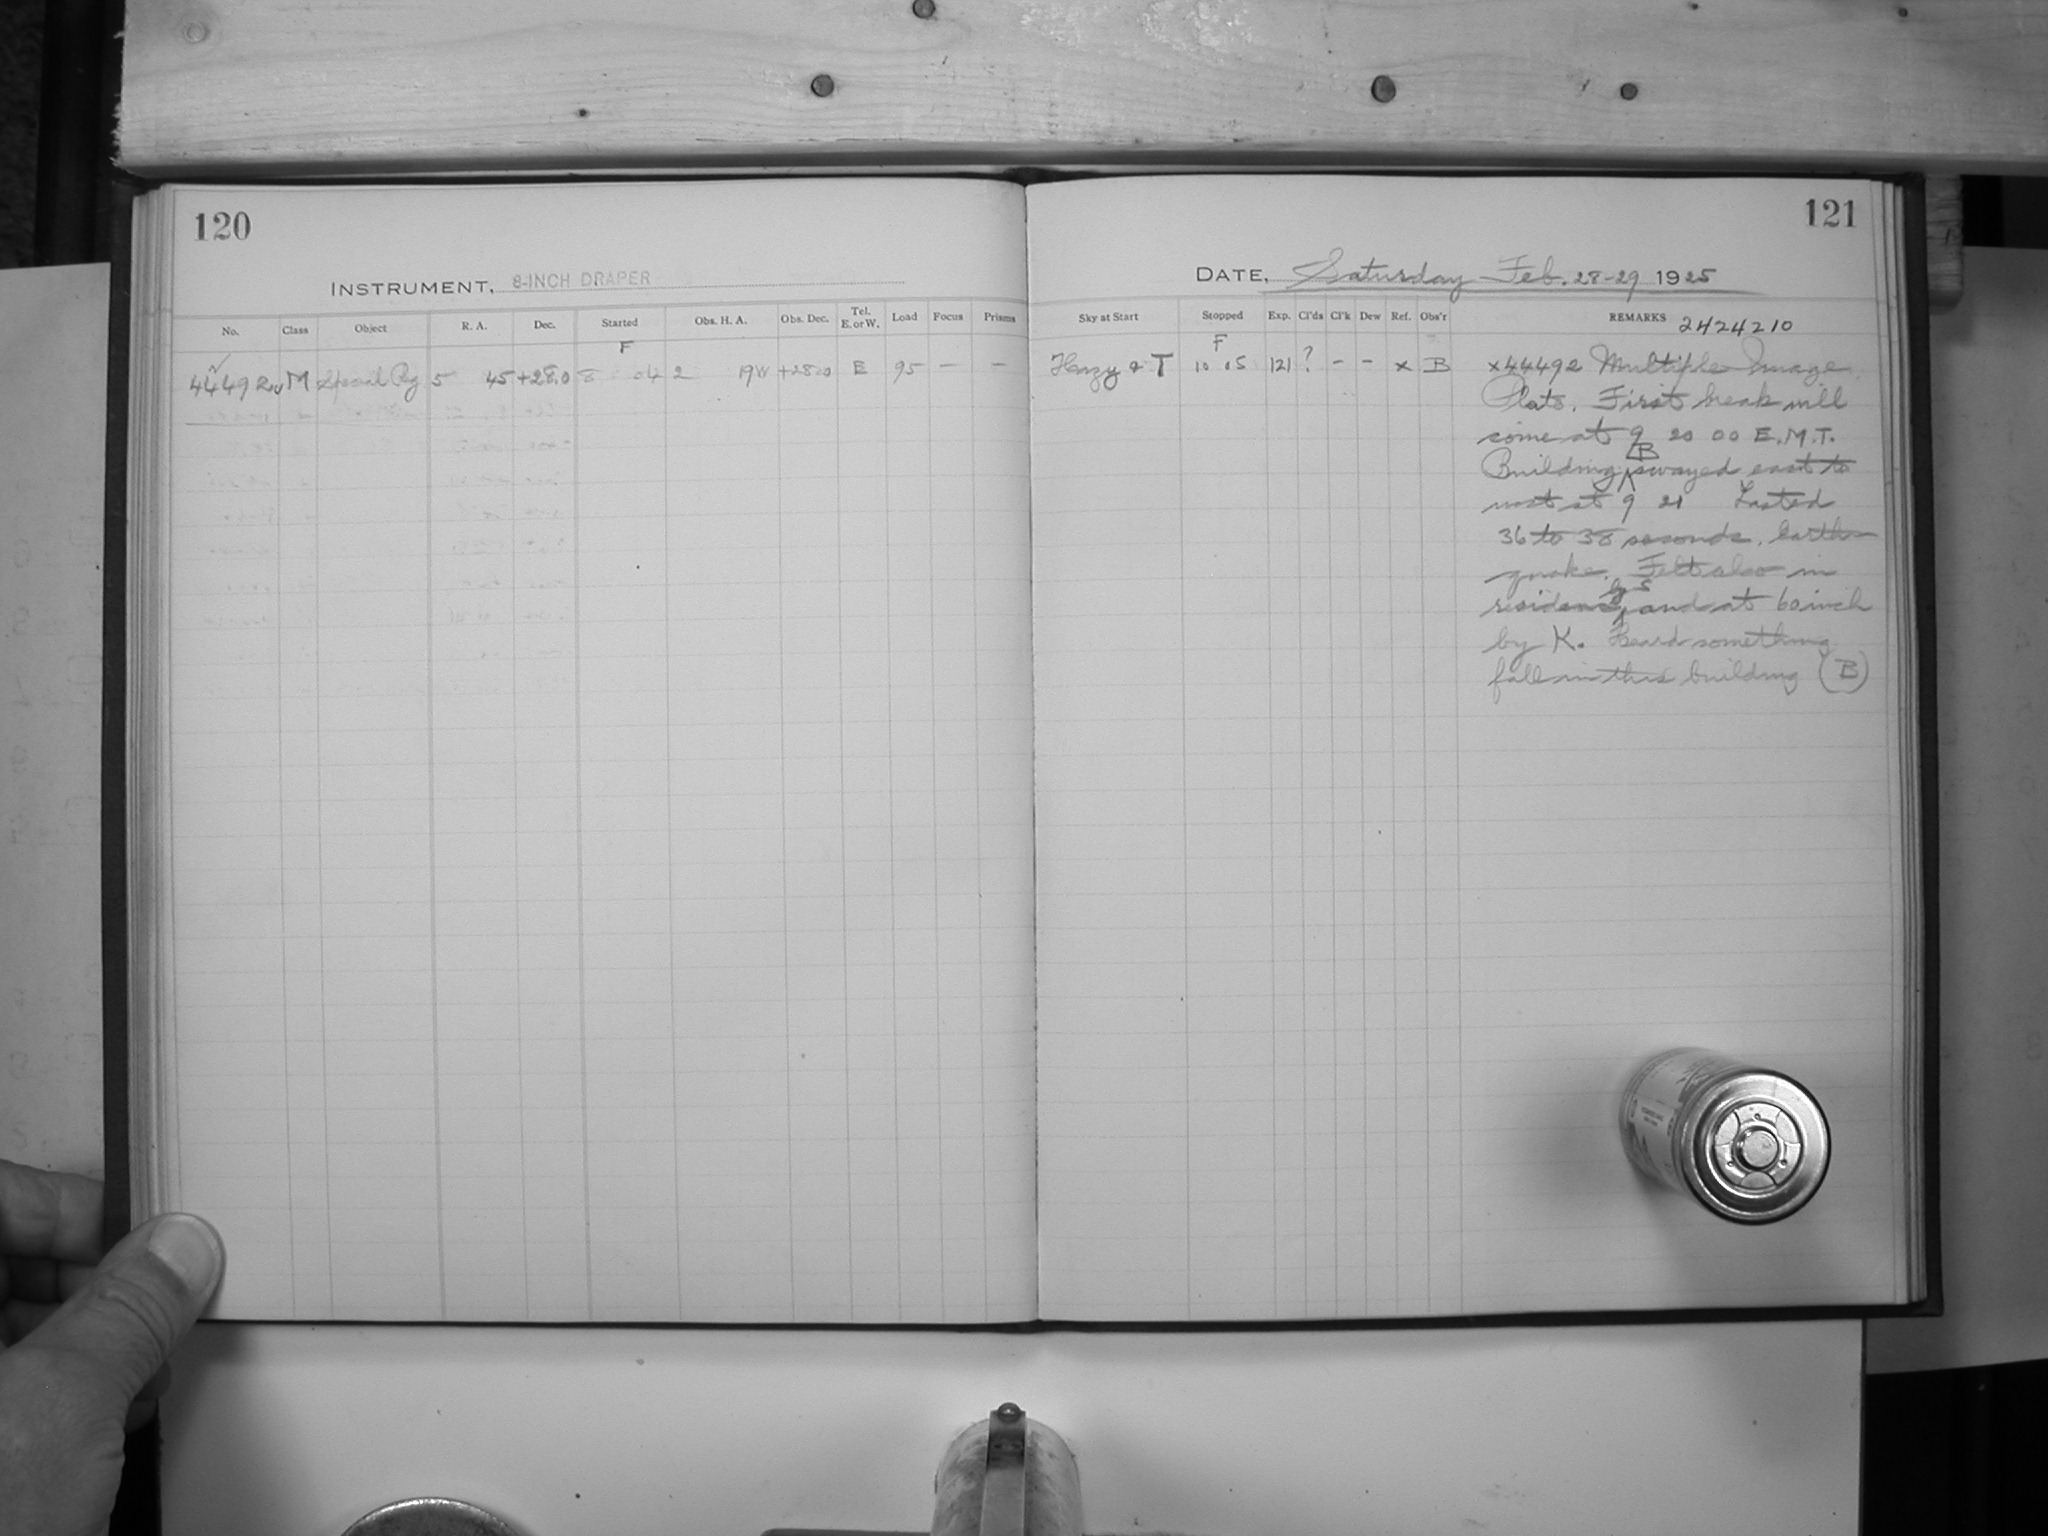 120
INSTRUMENT, 8-INCH DRAPER
No. Class Object R. A. Dec. Started Obs. H. A. Obs. Dec. Tel. E. or W. Load Focus Prisms
F
44492 M Special Rg 5 45 +28.0 8 04 2 19W +28.0 E 95 — —
121
DATE, Saturday Feb. 28-29 1925
Sky at Start Stopped Exp. Cl'ds Cl'k Dew Ref. Obs'r REMARKS 2424210
F
Hazy & T 10 05 121 ? - - x B x44492 Multiple Image
Plate. First break will
come at 9 20 00 E.M.T.
B
Building swayed east to
west at 9 21 Lasted
36 to 38 seconds. Earth-
quake. Felt also in
by S
residence and at 60 inch
by K. Heard something
fall in this building (B)